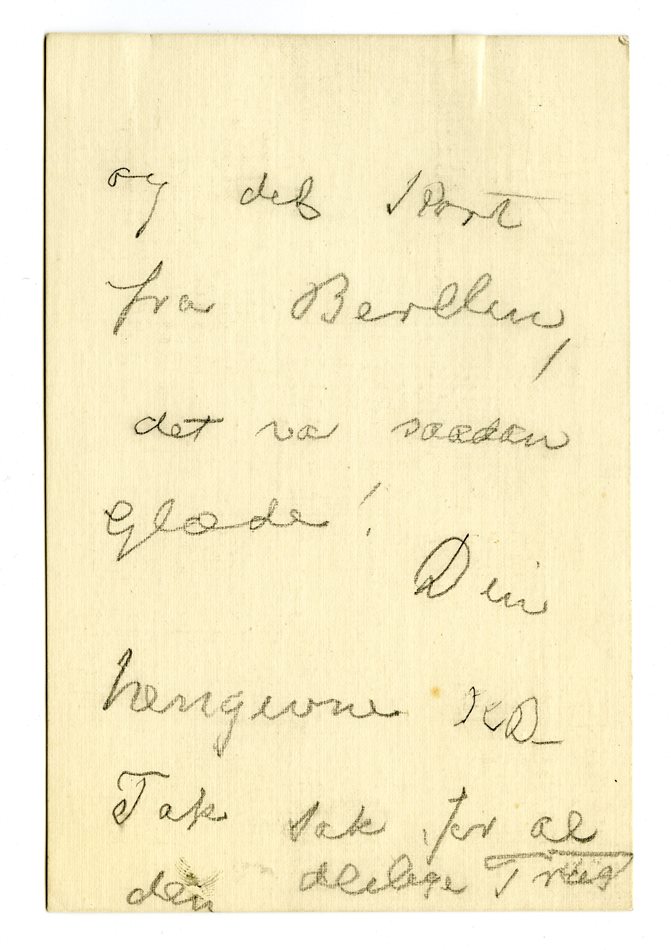 og det Kort
fra Berlin,
det var saadan
Glæde!
Din
hengivne KD
Tak tak for al
den deilige